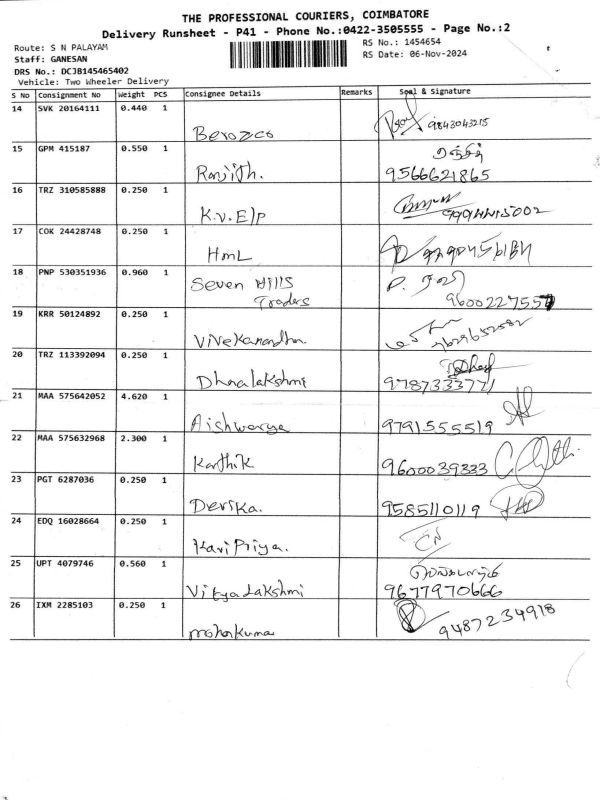 THE PROFESSIONAL COURIERS, COIMBATORE
Delivery Runsheet - P41 - Phone No.:0422-3505555 - Page No.:2
Route: S N PALAYAM
RS No.: 1454654
Staff: GANESAN
RS Date: 06-Nov-2024
DRS No.: DCJB145465402
Vehicle: Two Wheeler Delivery
S No Consignment No Weight PCS Consignee Details Remarks Seal & Signature
14 SVK 20164111 0.440 1
Berozco 9843043215
15 GPM 415187 0.550 1 ரஞ்சித்
Ranjith. 9566621865
16 TRZ 310585888 0.250 1
K.V.Elp
17 COK 24428748 0.250 1
HmL
18 PNP 530351936 0.960 1
Seven Hills
Traders 9600227557
19 KRR 50124892 0.250 1
Vivekanandha
20 TRZ 113392094 0.250 1
Dhnalakshmi 9787333771
21 MAA 575642052 4.620 1
Aishwarya 9791555519
22 MAA 575632968 2.300 1
Karthik 9600039333
23 PGT 6287036 0.250 1
Devika. 9585110119
24 EDQ 16028664 0.250 1
Kavi Priya.
25 UPT 4079746 0.560 1
Vidya Lakshmi 9677970666
26 IXM 2285103 0.250 1
mohankumar 9487234918